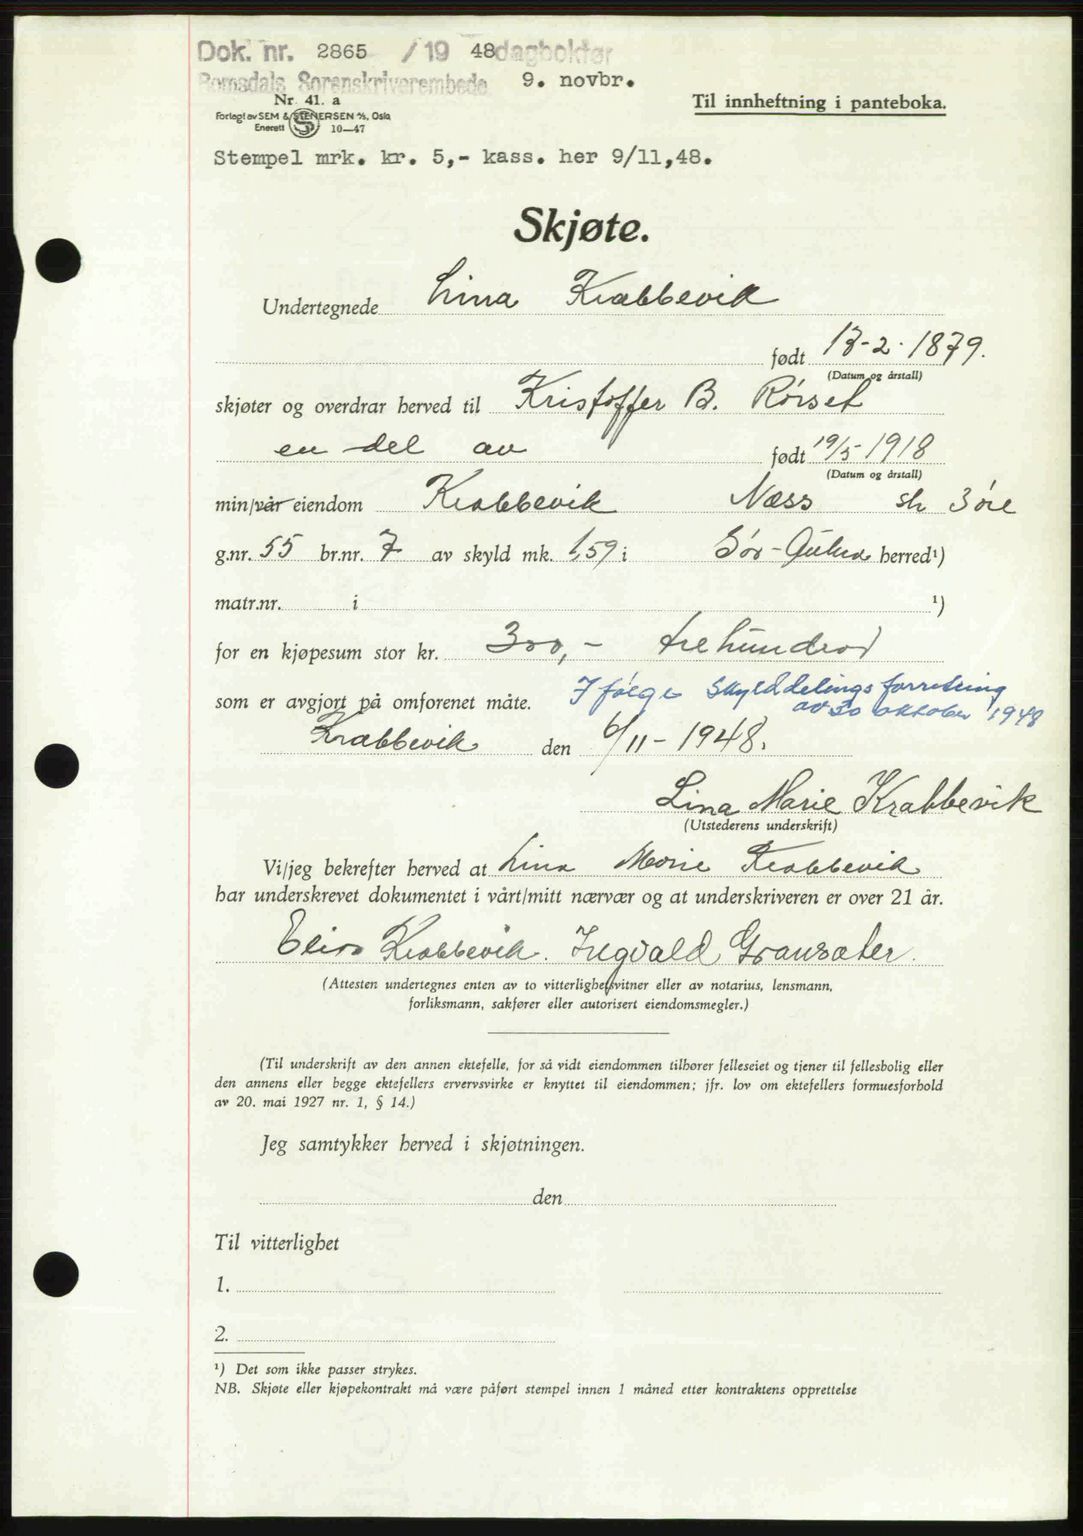 Dok. nr. 2865 / 19 48 dagbokfør
Romsdals Sorenskriverembede 9. novbr.
Nr. 41. a
Forlagt av SEM & STENERSEN A/S, Oslo
Enerett 10—47
Til innheftning i panteboka.
Stempel mrk. kr. 5,- kass. her 9/11,48.
Skjøte.
Undertegnede Lina Krabbevik
født 13-2-1879.
(Datum og årstall)
skjøter og overdrar herved til Kristoffer B. Rørset
en del av født 19/5-1918
(Datum og årstall)
min/vår eiendom Krabbevik Næss Søre
g.nr. 55 br.nr. 7 av skyld mk. 1,59 i Sør-Aukra herred¹)
matr.nr. i ¹)
for en kjøpesum stor kr. 300,- trehundrod
som er avgjort på omforenet måte. Ifølge Skylddelingsforretning
av 30 oktober 1948
Krabbevik den 6/11-1948.
Lina Marie Krabbevik
(Utstederens underskrift)
Vi/jeg bekrefter herved at Lina Marie Krabbevik
har underskrevet dokumentet i vårt/mitt nærvær og at underskriveren er over 21 år.
Krabbevik. Ingvald Gransæter.
(Attesten undertegnes enten av to vitterlighetsvitner eller av notarius, lensmann,
forliksmann, sakfører eller autorisert eiendomsmegler.)
(Til underskrift av den annen ektefelle, for så vidt eiendommen tilhører felleseiet og tjener til fellesbolig eller
den annens eller begge ektefellers ervervsvirke er knyttet til eiendommen; jfr. lov om ektefellers formuesforhold
av 20. mai 1927 nr. 1, § 14.)
Jeg samtykker herved i skjøtningen.
den
Til vitterlighet
1.
2.
¹) Det som ikke passer strykes.
NB. Skjøte eller kjøpekontrakt må være påført stempel innen 1 måned etter kontraktens opprettelse